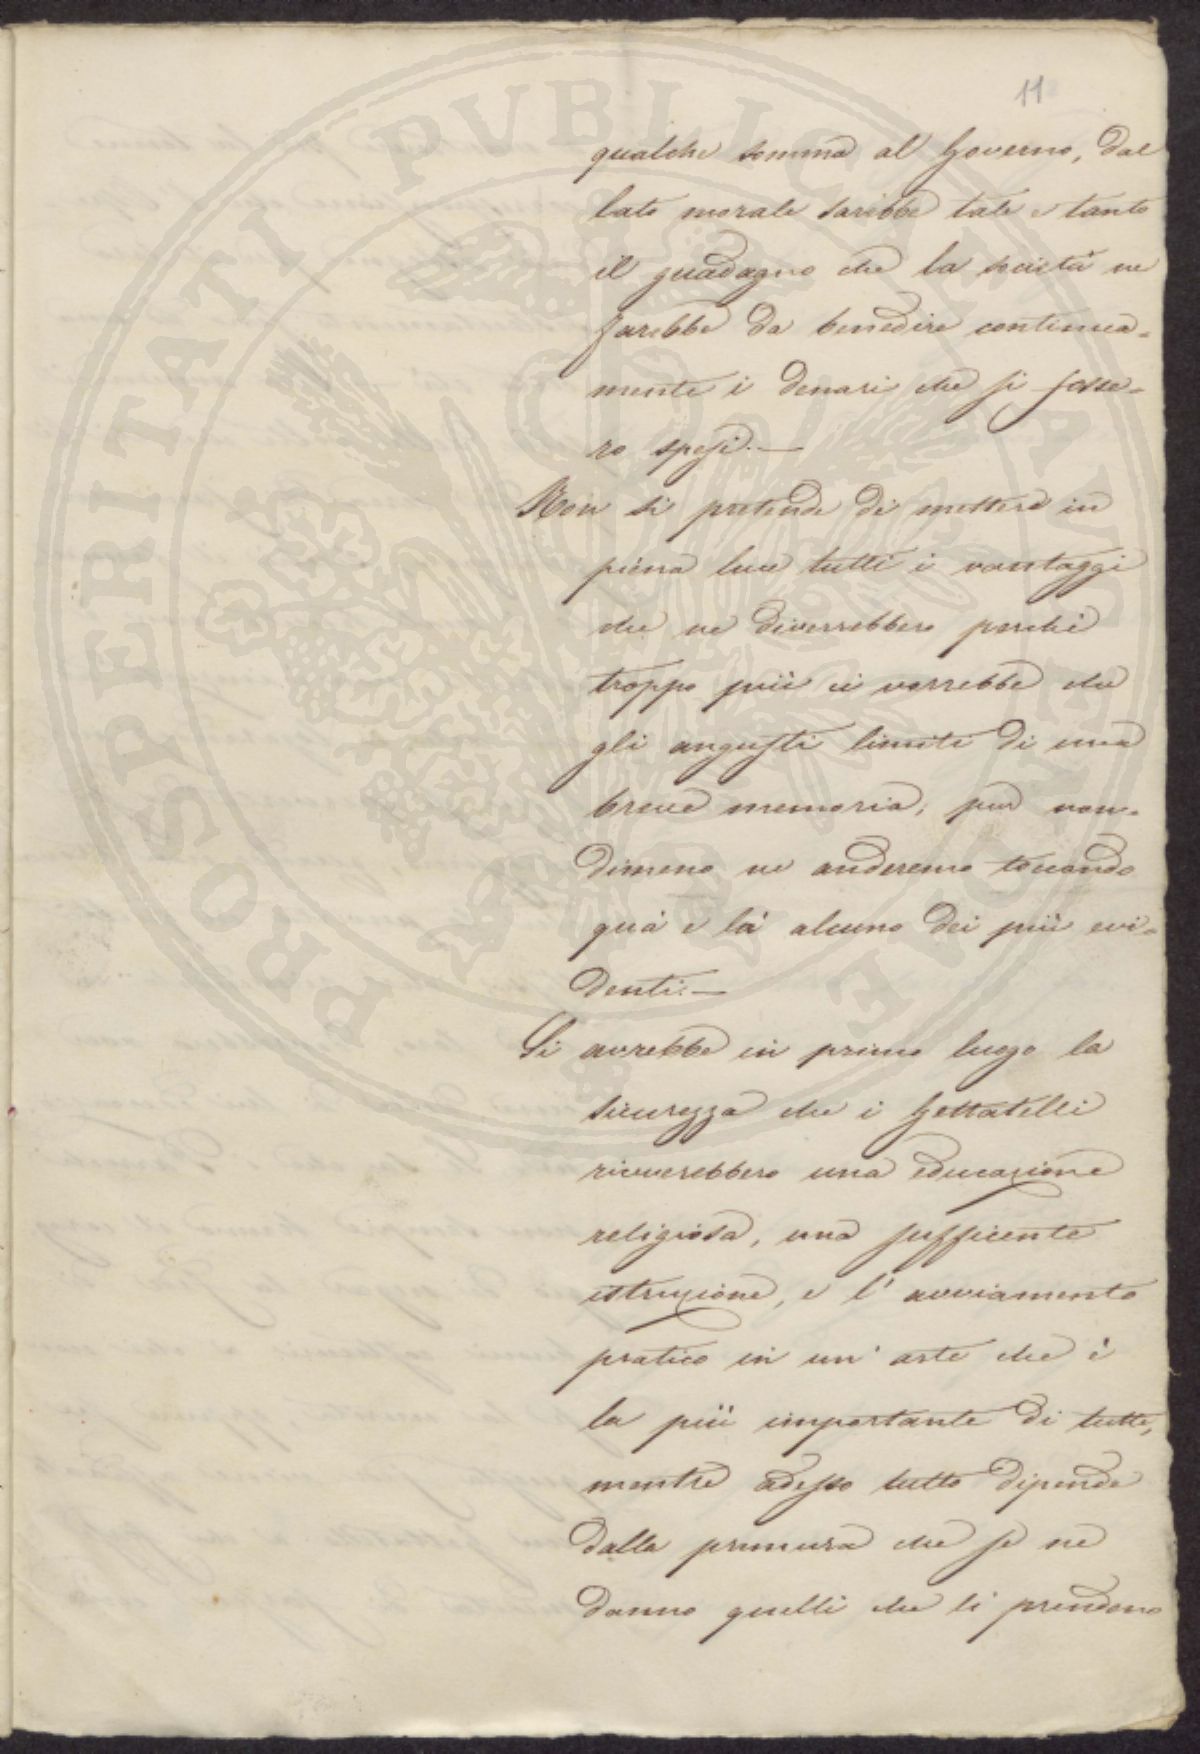 11
qualche somma al Governo, dal
lato morale sarebbe tale e tanto
il guadagno che la società ne
farebbe da benedire continua=
mente i denari che si fosse=
ro spesi.—
Non si pretende di mettere in
piena luce tutti i vantaggi
che ne diverrebbero perchè
troppo più ci vorrebbe che
gli angusti limiti di una
breve memoria; pur non=
dimeno ne anderemo toccando
quà e là alcuno dei più evi=
denti.—
Si avrebbe in primo luogo la
sicurezza che i Gettatelli
riceverebbero una educazione
religiosa, una sufficente
istruzione, e l' avviamento
pratico in un' arte che è
la più importante di tutte,
mentre adesso tutto dipende
dalla premura che se ne
danno quelli che li prendono
PROSPERITATI PVBLICAE AVGENDAE